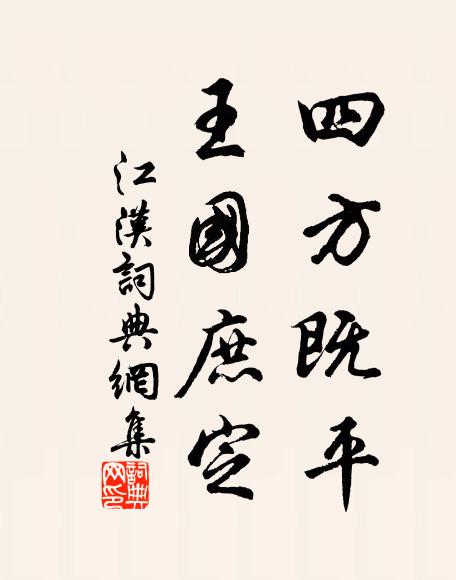 四方既平
王國庶定
江漢詞典網集
詞典網印